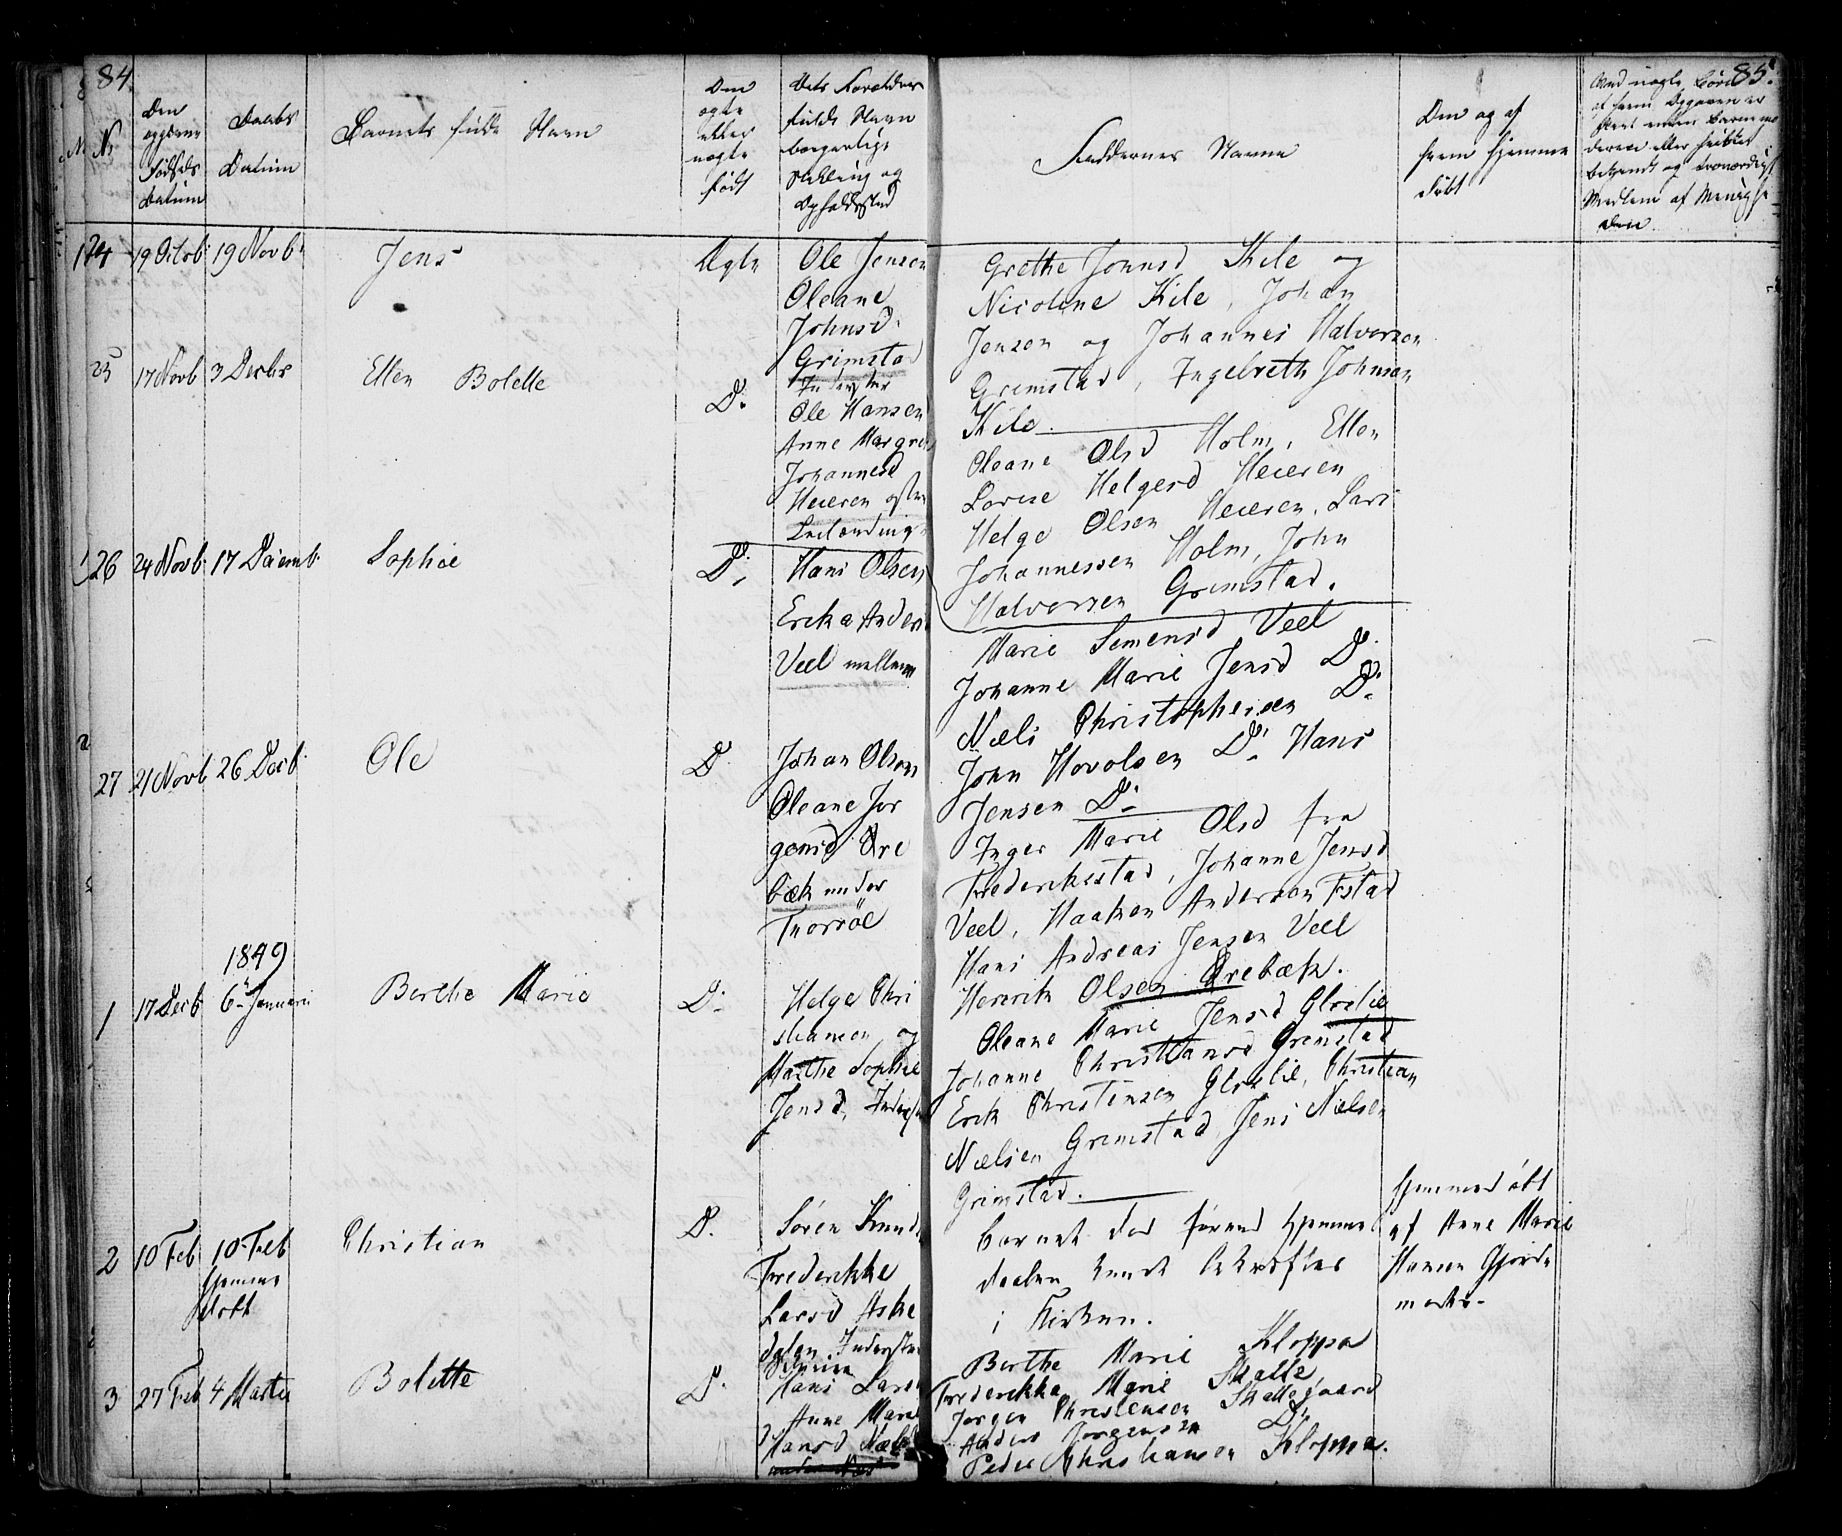 84
85.
No
Den
opgivne
Fødsels
Datum
Daabs
Datum
Barnets fulde Navn
Om
ægte
eller
uægte
født
Dets Forældres
fulde Navn
borgerlige
Stilling og
Opholdssted
Faddernes Navne
Om og af
hvem hjemme
døbt
Ved uægte Børn
af hvem Opgaven er
skeet enten Barnemo
deren eller
bekjendt og troværdigt
Medlem af Menighe
den.
24 19 Octob 19 Novb Jens Ægte
Ole Jensen
Oleane
Johnsd.
Grimstad
Grethe Jonnsd Kile og
Nicoline Kile, Johan
Jensen og Johannes Halvorsen
Grimstad, Ingebreth Johnsen
Kile.
25 17 Novb 3 Decbr Ellen Bolette Do
Inderster
Ole Hansen
Anne Margre
Johannesd
Heieren østre
Oleane Olsd Holm, Ellen
Lovise Helgesd Heieren
Helge Olsen Heieren, Lars
Johannessen Holm, John
Halvorsen Grimstad.
26 24 Novb. 17 Decemb. Sophie Do
Hans Olsen
Ericka Anders
Veel mellem
Marie Semensd Veel
Johanne Marie Jensd Do
Niels Christophersen Do
John Hovolsen Do Hans
Jensen Do
27 21 Novb 26 Decb. Ole Do
Johan Olsen
Oleane Jor
gensd Øre
bæk under
Thorsøe
Inger Marie Olsd fra
Frederikstad, Johanne Jensd
Veel, Haaken Andersen Fstad
Hans Andreas Jensen Veel
Henrik Olsen Ørebæk.
1849
1 17 Decb 6 Januari Berthe Marie Do
Helge Chri
stiansen og
Marthe Sophie
Jensd, Inderst
Oleane Marie Jensd Glxxlie
Johanne Christiansd Grimstad
Erik Christensen, Christian
Nielsen Grimstad, Jens Nielsen
Grimstad.
2 10 Feb 10 Feb Christian D.
hjemme
døbt
Søren Knuds
Frederikke
Larsd Aske
dalen Inderster
Barnet død førend hjemme
daaben kunde bekræftes
i Kirken.
hjemmedøbt
af Anne Marie
Hansen Gjorde
moder.
3 27 Feb 4 Martii Bolette D.
Hans Lars
Anne Marie
Hansd
Berthe Marie Kloppa
Frederikke Marie Skalle
Jørgen Christensen Skallegaard
Anders Jorgensen Do
Peder Christiansen Kloppa.